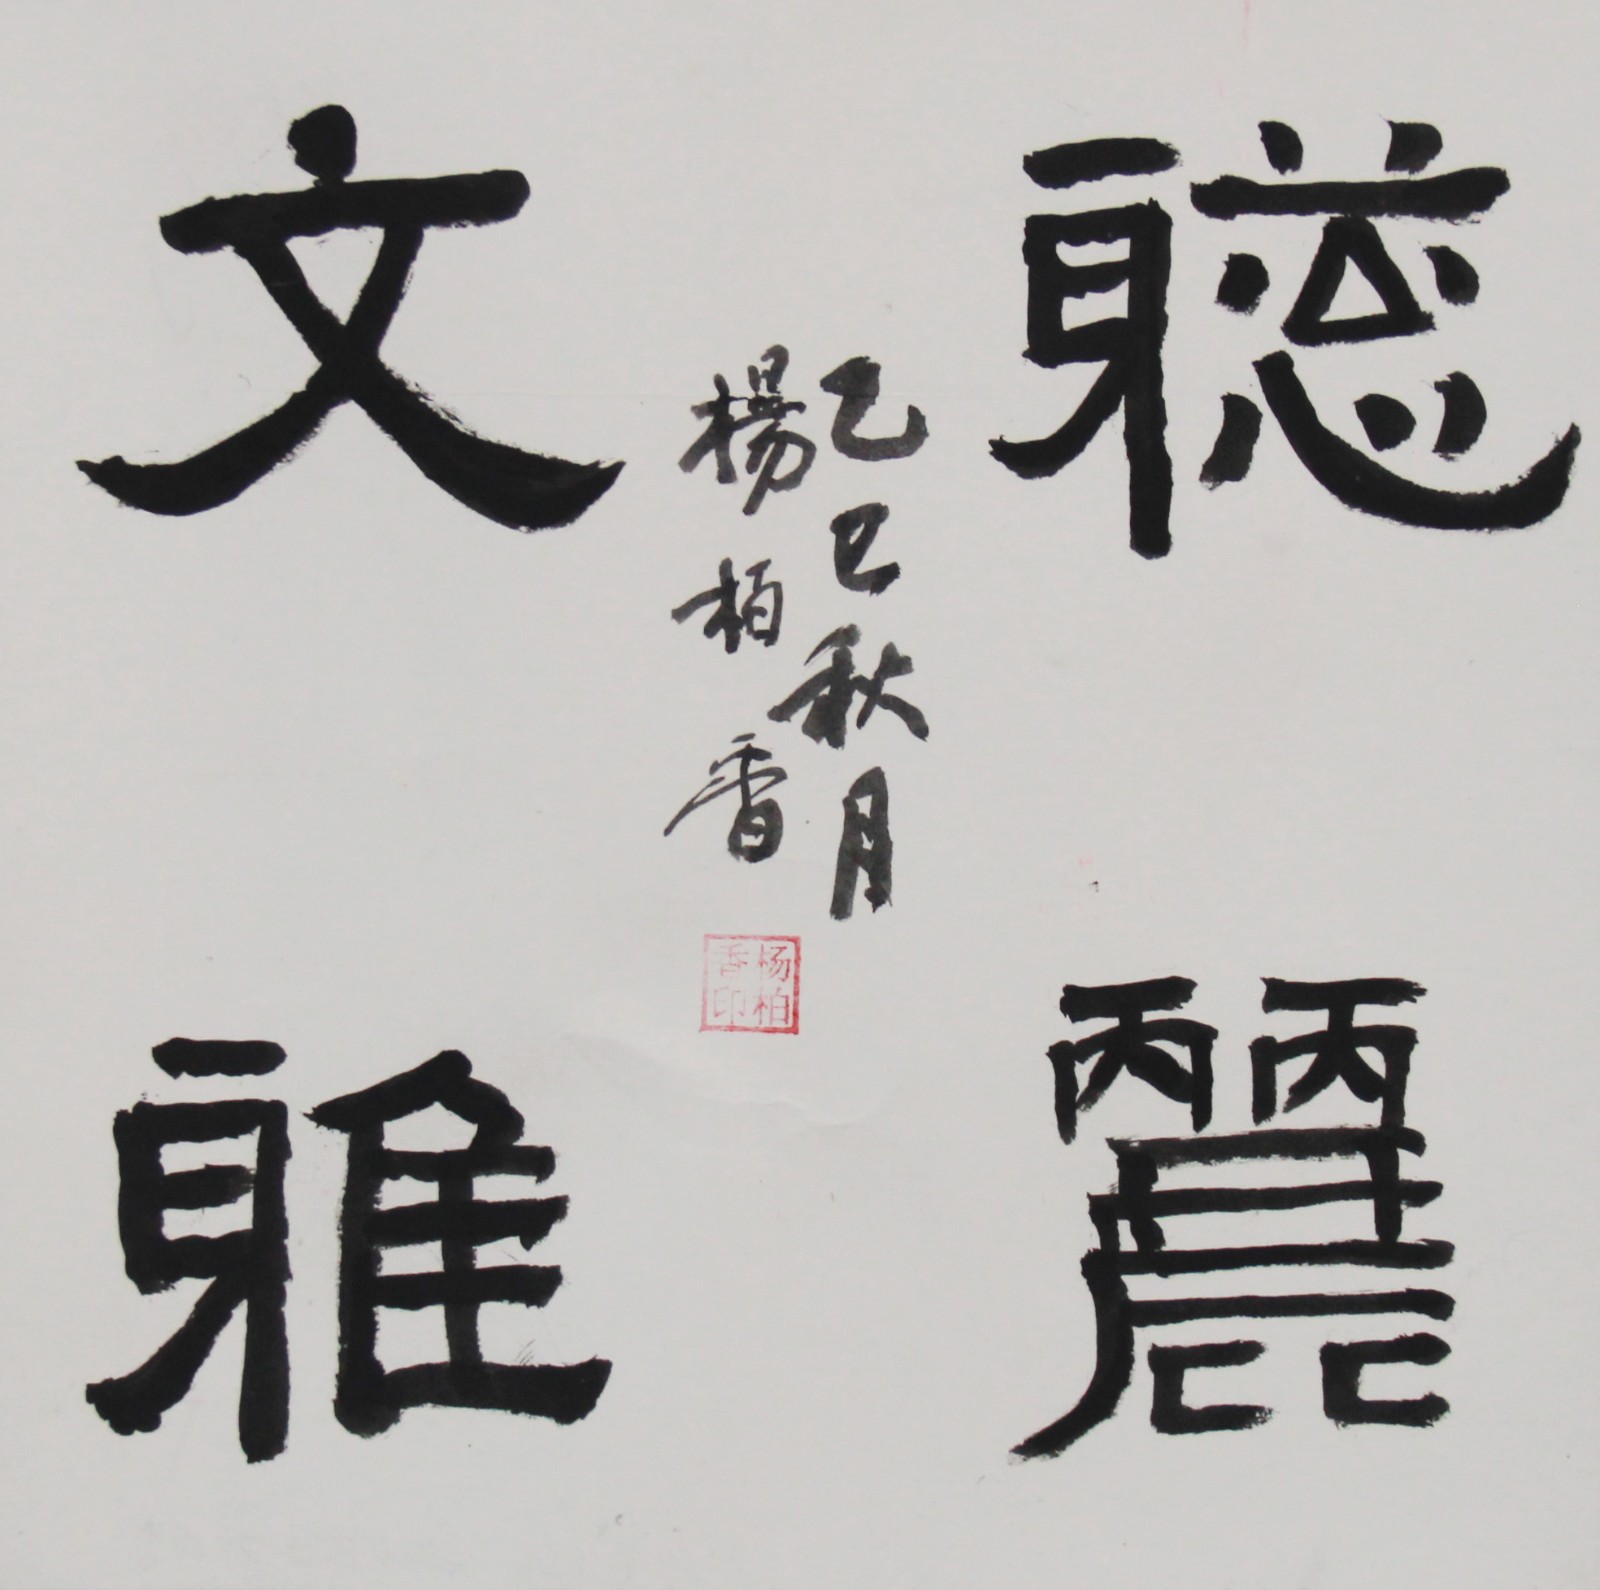 聰麗
文雅
乙巳秋月
楊柏香
杨柏
香印